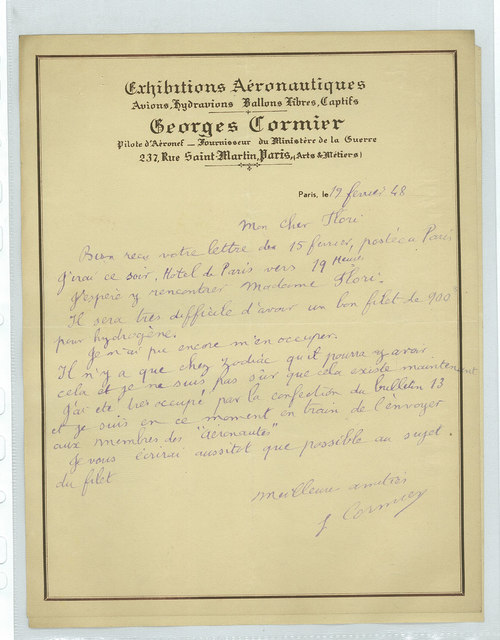 Exhibitions Aéronautiques
Avions, Hydravions Ballons Libres, Captifs
Georges Cormier
Pilote d'Aéronef — Fournisseur du Ministère de la Guerre
237, Rue Saint-Martin, Paris, (Arts & Métiers)
Paris, le 19 fevrier 48
Mon cher Flori
Bien reçu votre lettre du 15 fevrier, postée a Paris
J'irai ce soir, Hotel de Paris vers 19 Heures
J'espère y rencontrer Madame Flori.
Il sera très difficile d'avoir un bon filet de 900
pour hydrogène.
Je n'ai pu encore m'en occuper.
Il n'y a que chez Zodiac qu'il pourra y avoir
cela et je ne suis pas sûr que cela existe maintenant
J'ai eté très occupé par la confection du bulletin 13
et je suis en ce moment en train de l'envoyer
aux membres des "aéronautes"
Je vous écrirai aussitot que possible au sujet.
du filet
Meilleures amitiés
G Cormier